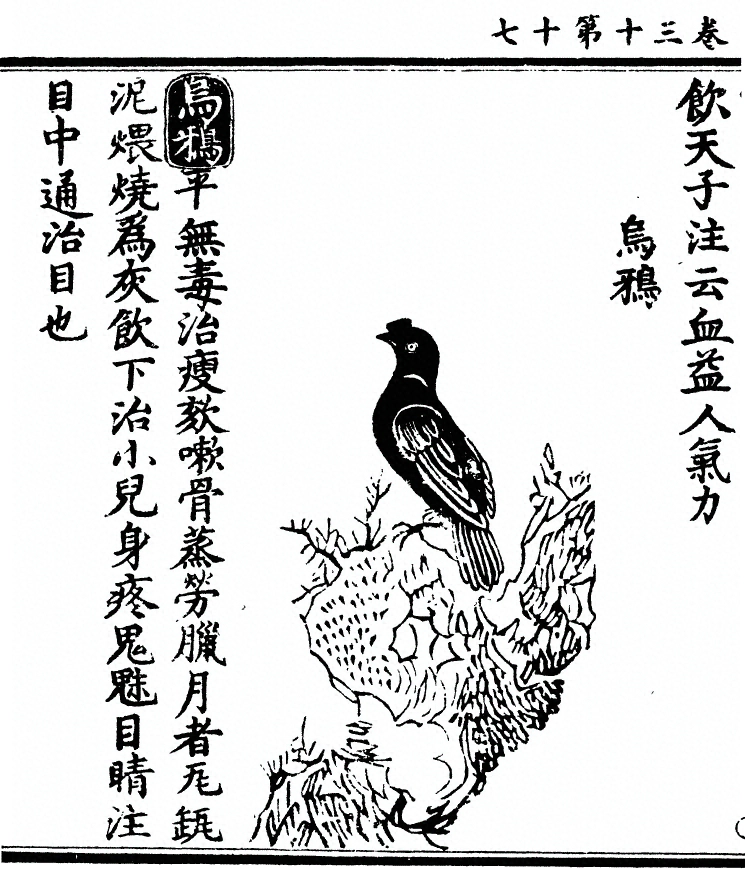 卷三十第十七
飲天子注云血益人氣力
烏鴉
烏鴉平無毒治瘦欬嗽骨蒸勞臘月者瓦缻
泥煨燒爲灰飲下治小兒身疼鬼魅目睛注
目中通治目也